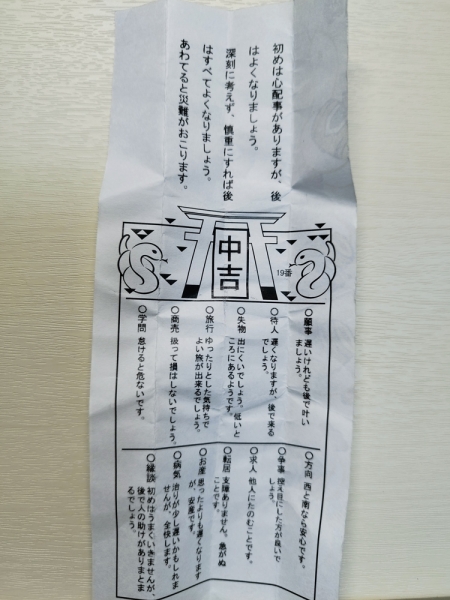 初めは心配事がありますが、後
はよくなりましょう。
深刻に考えず、慎重にすれば後
はすべてよくなりましょう。
あわてると災難がおこります。
中吉
19番
○願事 遅いけれども後で叶い
ましょう。
○待人 遅くなりますが、後で来る
でしょう。
○失物 出にくいでしょう。低いと
ころにあるようです。
○旅行 ゆったりとした気持ちで
よい旅が出来るでしょう。
○商売 扱って損はしないでしょう。
○学問 怠けると危ないです。
○方向 西と南なら安心です。
○争事 控え目にした方が良いで
しょう。
○求人 他人にたのむことです。
○転居 支障ありません。急がぬ
ことです。
○お産 思ったよりも遅くなります
が、安産です。
○病気 治りが少し遅いかもしれま
せんが、全快します。
○縁談 初めはうまくいきませんが、
後で人の助けがありまとま
るでしょう。